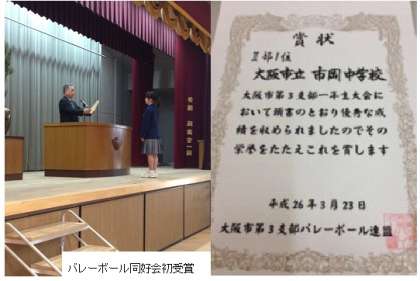 バレーボール同好会初受賞
賞状
Ⅱ部1位
大阪市立 市岡中学校
大阪市第3支部一年生大会に
おいて頭書のとおり優秀な成
績を収められましたのでその
栄誉をたたえこれを賞します
平成26年3月23日
大阪市第3支部バレーボール連盟